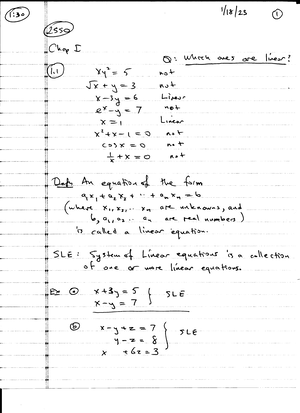 1:30
1/18/23
1
2550
Chap I
Q: Which ones are linear?
1.1
xy² = 5 not
√x + y = 3 not
x - 3y = 6 Linear
eˣ - y = 7 not
x = 1 Linear
x² + x - 1 = 0 not
cos x = 0 not
1/x + x = 0 not
Def: An equation of the form
a₁x₁ + a₂x₂ + ··· + aₙxₙ = b
(where x₁, x₂, ··· xₙ are unknowns, and
b, a₁, a₂ ·· aₙ are real numbers)
is called a linear equation.
SLE: System of Linear equations is a collection
of one or more linear equations.
Ex a x + 3y = 5
x - y = 7 } SLE
b x - y + z = 7
y - z = 8 } SLE
x + 6z = 3